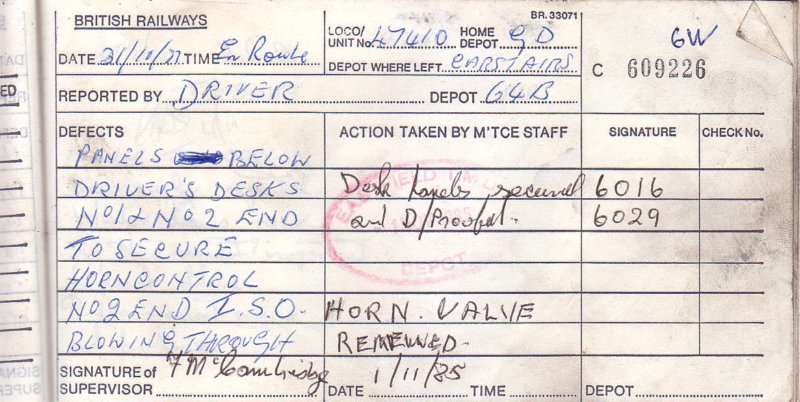 BRITISH RAILWAYS
BR. 33071
DATE TIME En Route
LOCO/UNIT No. 47410 HOME DEPOT GD
DEPOT WHERE LEFT CARSTAIRS
GW
C 609226
REPORTED BY DRIVER DEPOT 64B
DEFECTS ACTION TAKEN BY M'TCE STAFF SIGNATURE CHECK No.
PANELS BELOW
DRIVER'S DESKS Desk panels secured 6016
No 1 & No 2 END and D/Proofed. 6029
TO SECURE
HORN CONTROL
No 2 END I.S.O. HORN. VALVE
BLOWING THROUGH RENEWED.
SIGNATURE of SUPERVISOR DATE 1/11/85 TIME DEPOT
DEPOT